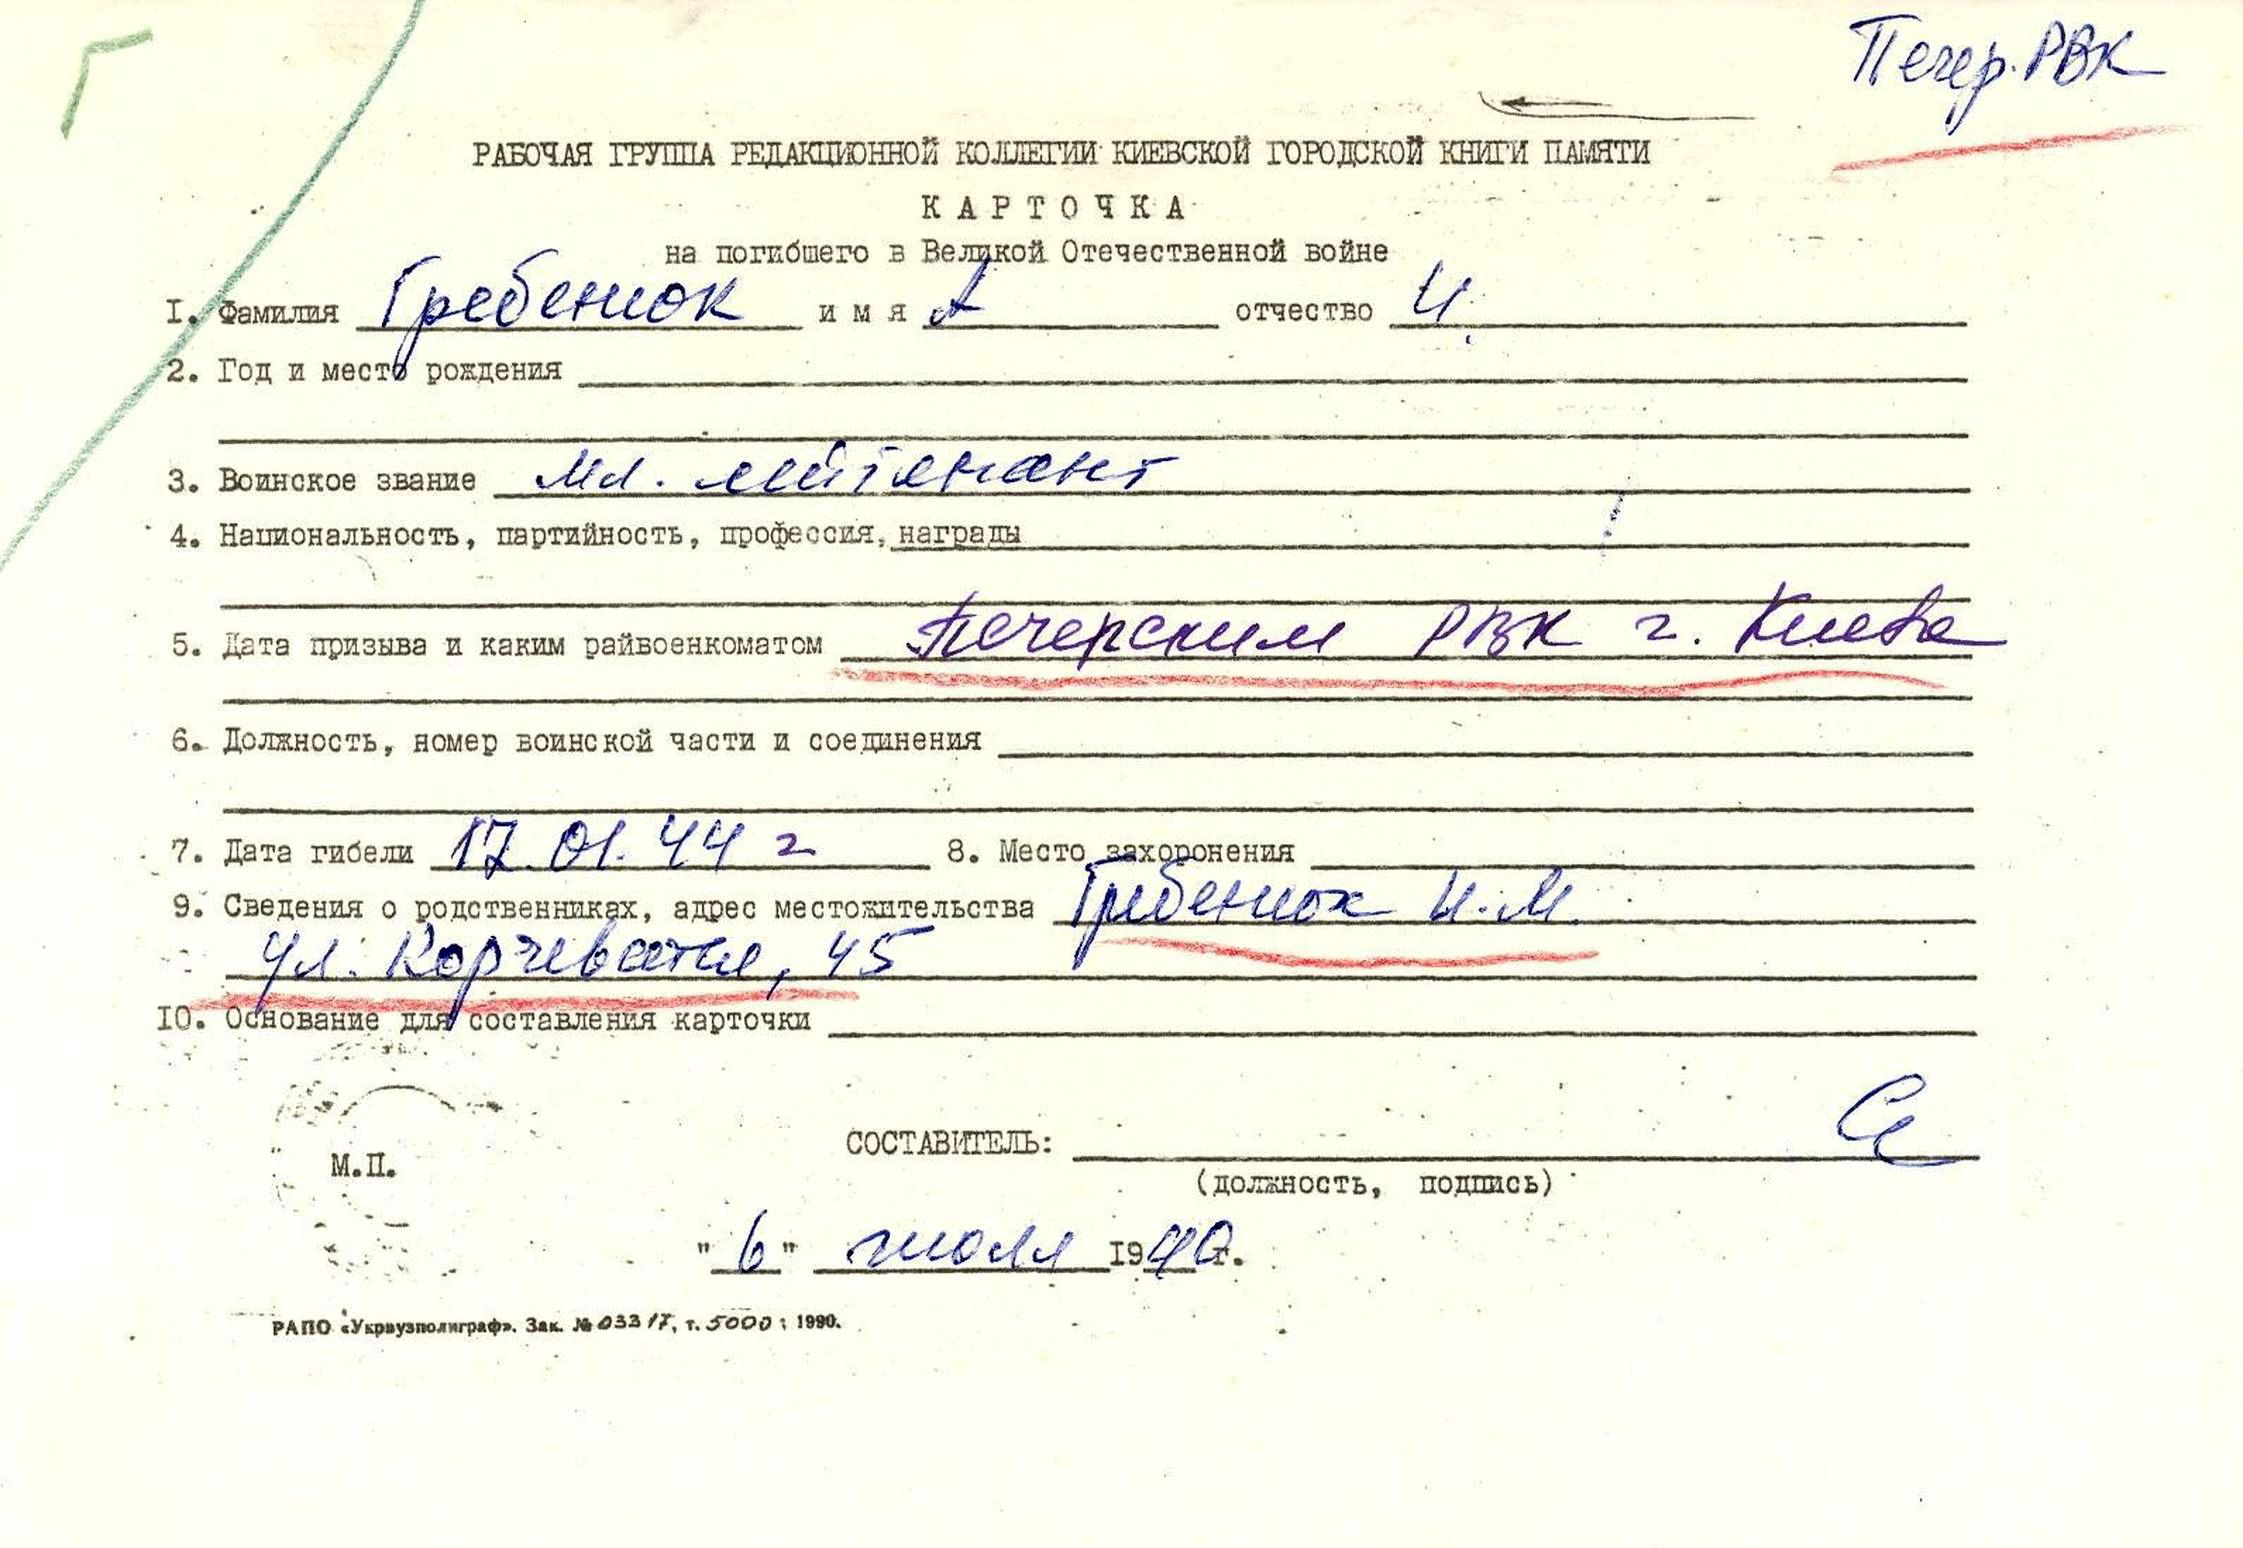 Г
Печер. РВК
РАБОЧАЯ ГРУППА РЕДАКЦИОННОЙ КОЛЛЕГИИ КИЕВСКОЙ ГОРОДСКОЙ КНИГИ ПАМЯТИ
КАРТОЧКА
на погибшего в Великой Отечественной войне
I. Фамилия Гребенюк имя А отчество И.
2. Год и место рождения
3. Воинское звание мл. лейтенант
4. Национальность, партийность, профессия, награды
5. Дата призыва и каким райвоенкоматом Печерским РВК г. Киева
6. Должность, номер воинской части и соединения
7. Дата гибели 17.01.44 г 8. Место захоронения
9. Сведения о родственниках, адрес местожительства Гребенюк И.М.
ул. Корчеватая, 45
IO. Основание для составления карточки
СОСТАВИТЕЛЬ:
М.П.
(должность, подпись)
"6" июля 1990г.
РАПО «Укрвузполиграф». Зак. № 03317, т. 5000; 1990.